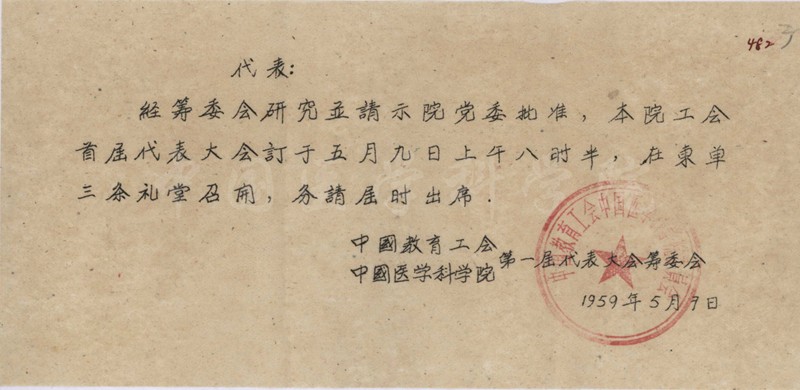 482
代表：
経筹委会研究並請示院党委批准，本院工会
首屆代表大会訂于五月九日上午八时半，在東单
三条礼堂召開，务請屆时出席．
中國教育工会
中國医学科学院 第一屆代表大会筹委会
1959年5月7日
中国教育工会中国医学